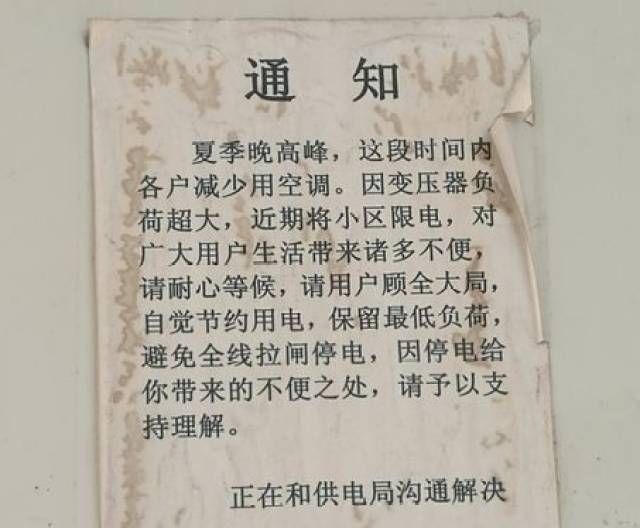 通 知
夏季晚高峰，这段时间内
各户减少用空调。因变压器负
荷超大，近期将小区限电，对
广大用户生活带来诸多不便，
请耐心等候，请用户顾全大局，
自觉节约用电，保留最低负荷，
避免全线拉闸停电，因停电给
你带来的不便之处，请予以支
持理解。
正在和供电局沟通解决